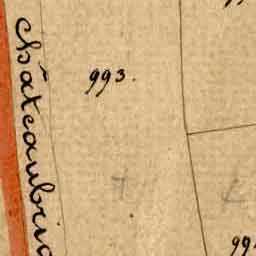 châteaubria
993.
T
L
99